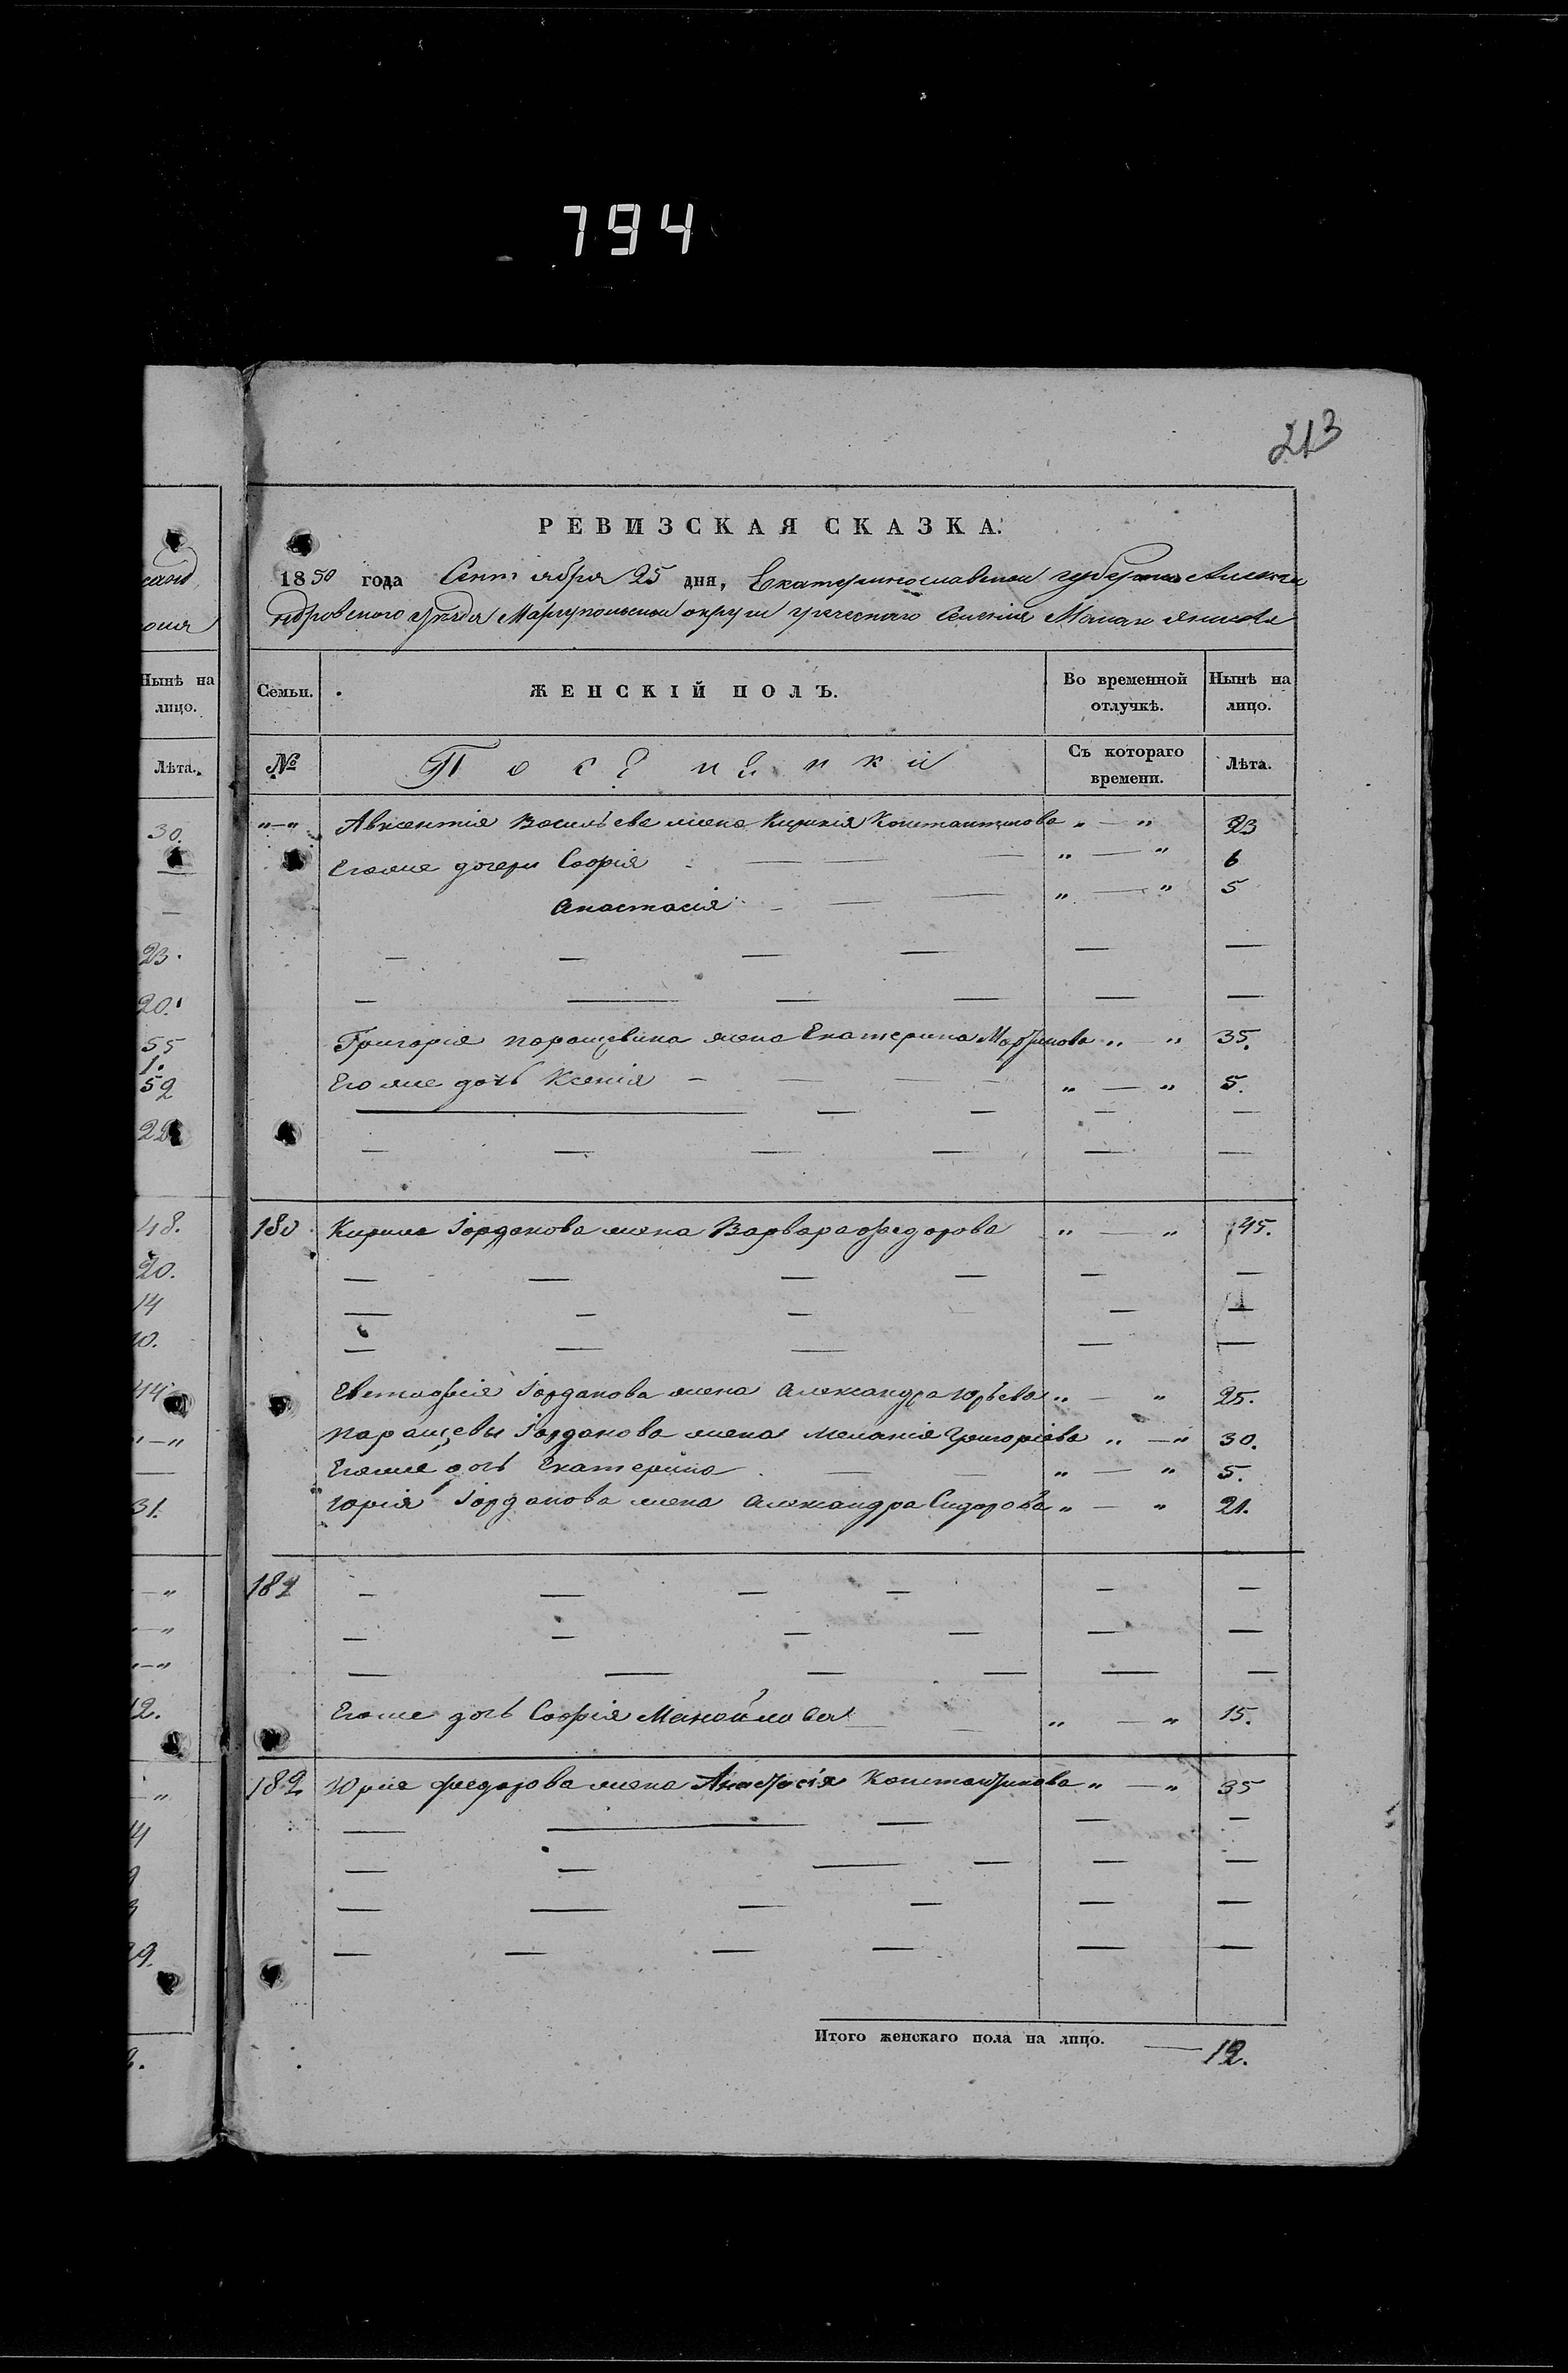 794
213
РЕВИЗСКАЯ СКАЗКА.
1850 года Сентября 25 дня, Екатеринославской губернии Алекса
ндровского уезда Мариупольской округи греческаго Селения Малаго Янисоля
Нынѣ на лицо.
Семьи. ЖЕНСКІЙ ПОЛЪ. Во временной отлучкѣ. Нынѣ на лицо.
Лѣта.
№ Поселянки Съ котораго времени. Лѣта.
"—" Авксентія Васильева жена Кирикія Константинова "—" 23
Егоже дочери Софія "—" 6
Анастасія "—" 5
Григорія Паращевина жена Екатерина Мартинова "—" 35.
Егоже дочь Ксенія "—" 5.
180 Кирила Іорданова жена Варвара Федорова "—" 45.
Евтафія Іорданова жена Александра Юрьева "—" 25.
Паращевы Іорданова жена Меланія Григоріева "—" 30.
Егоже дочь Екатерина "—" 5.
Юрія Іорданова жена Александра Сидорова "—" 21.
181
Егоже дочь Софія Манойлова "—" 15.
182 Юрія Федорова жена Анастасія Константинова "—" 35
Итого женскаго пола на лицо. — 12.
30.
23.
20.
55
1.
52
48.
20.
14
10.
44
31.
12.